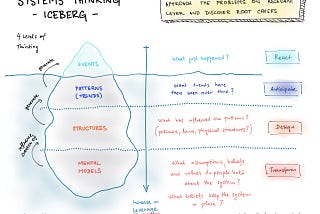 SYSTEMS THINKING
- ICEBERG -
APPROACH THE PROBLEMS ON RELEVANT
LAYER, AND DISCOVER ROOT CAUSES
4 Levels of
Thinking
EVENTS
What just happened?
React
PATTERNS
(TRENDS)
What trends have
there been over time?
Anticipate
STRUCTURES
What has influenced the patterns?
(policies, laws, physical structures?)
Design
MENTAL
MODELS
What assumptions, beliefs
and values do people hold
about the system?
What beliefs keep the system
in place?
Transform
Increase in
leverage